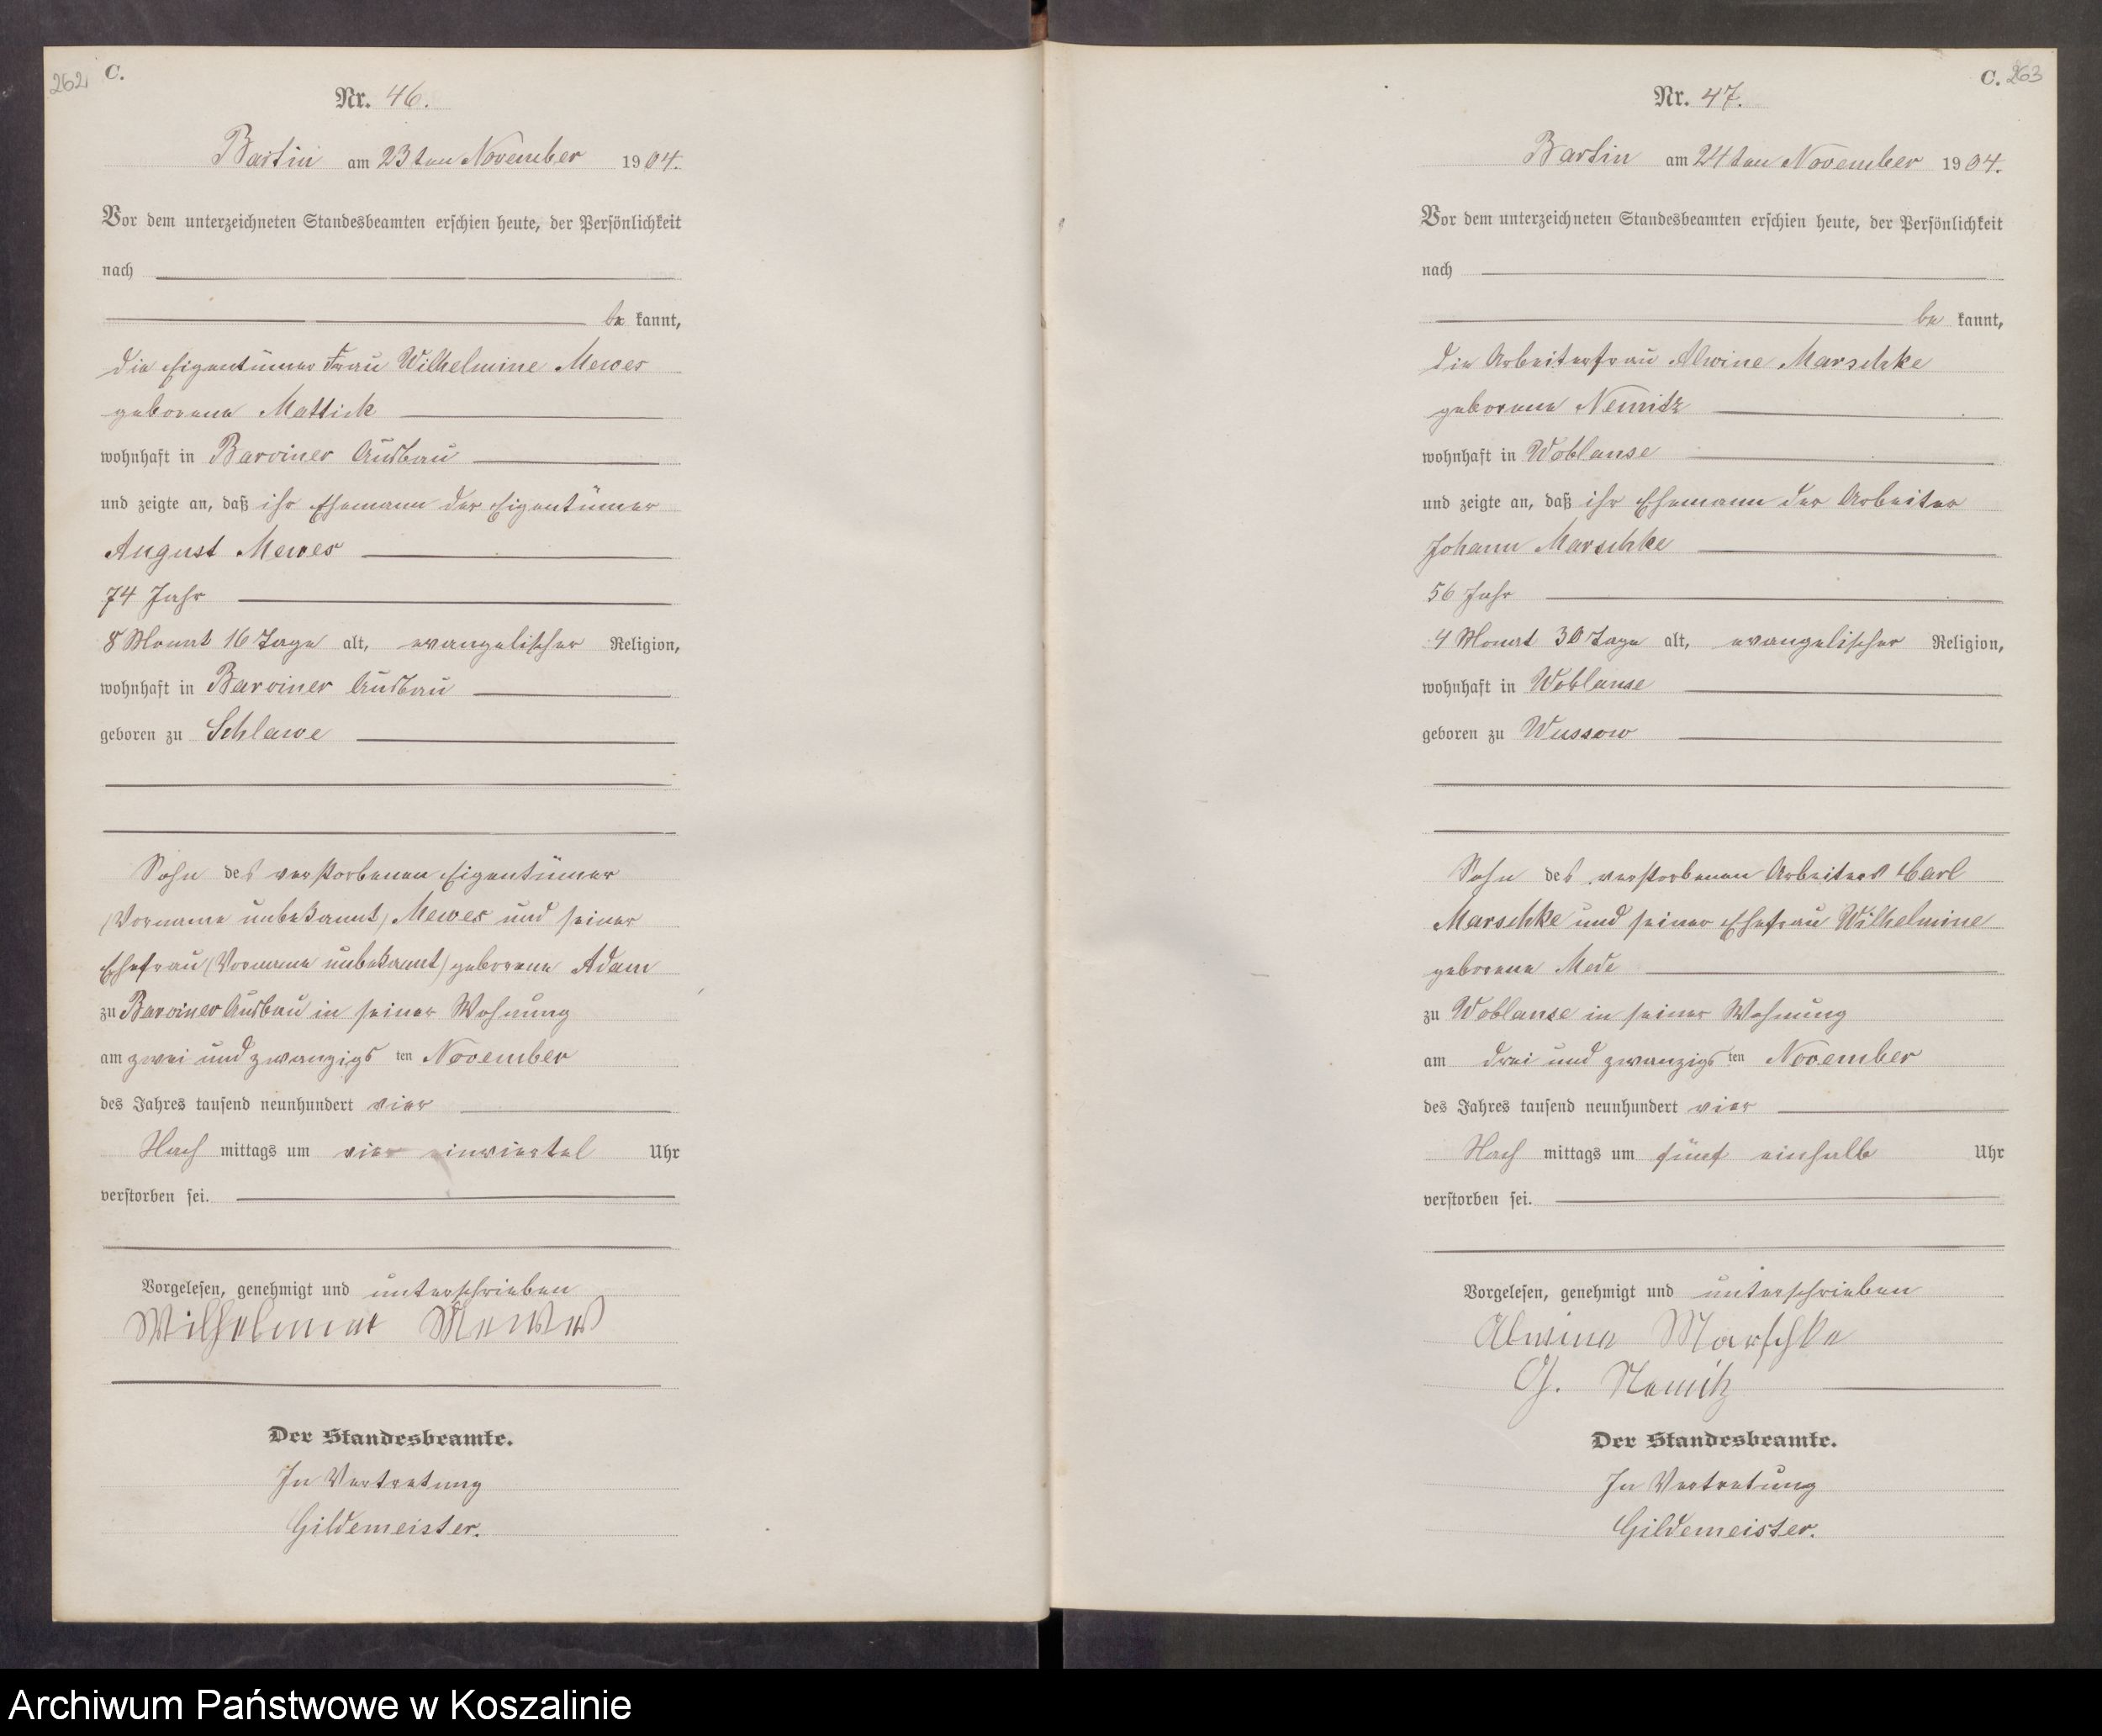 262
C.
Nr. 46.
Bartin am 23ten November 1904.
Vor dem unterzeichneten Standesbeamten erschien heute, der Persönlichkeit
nach
be kannt,
die Eigentümer Frau Wilhelmine Mewes
geborene Mattick
wohnhaft in Barviner Ausbau
und zeigte an, daß ihr Ehemann der Eigentümer
August Mewes
74 Jahr
8 Monat 16 Tage alt, evangelischer Religion,
wohnhaft in Barviner Ausbau
geboren zu Schlawe
Sohn des verstorbenen Eigentümer
(Vorname unbekannt) Mewes und seiner
Ehefrau (Vorname unbekannt) geborene Adam
zu Barviner Ausbau in seiner Wohnung
am zwei und zwanzigs ten November
des Jahres tausend neunhundert vier
Nach mittags um vier einviertel Uhr
verstorben sei.
Vorgelesen, genehmigt und unterschrieben
Wilhelmine Mewes
Der Standesbeamte.
In Vertretung
Gildemeister.
C. 263
Nr. 47.
Bartin am 24ten November 1904.
Vor dem unterzeichneten Standesbeamten erschien heute, der Persönlichkeit
nach
be kannt,
die Arbeiterfrau Alwine Marschke
geborene Nemitz
wohnhaft in Woblanse
und zeigte an, daß ihr Ehemann der Arbeiter
Johann Marschke
56 Jahr
4 Monat 30 Tage alt, evangelischer Religion,
wohnhaft in Woblanse
geboren zu Wussow
Sohn des verstorbenen Arbeiters Carl
Marschke und seiner Ehefrau Wilhelmine
geborene Mede
zu Woblanse in seiner Wohnung
am drei und zwanzigs ten November
des Jahres tausend neunhundert vier
Nach mittags um fünf einhalb Uhr
verstorben sei.
Vorgelesen, genehmigt und unterschrieben
Alwine Marschke
G. Nemitz
Der Standesbeamte.
In Vertretung
Gildemeister.
Archiwum Państwowe w Koszalinie